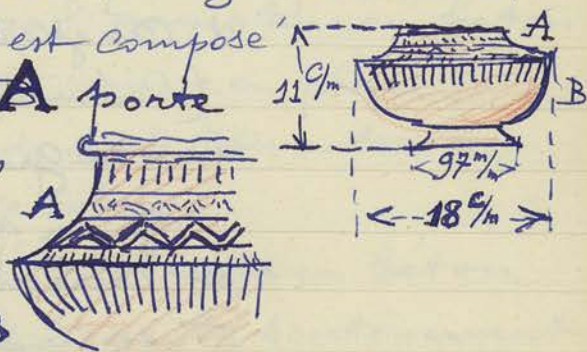 est composé
A porte
A
A
B
11 c/m
97 m/m
18 c/m